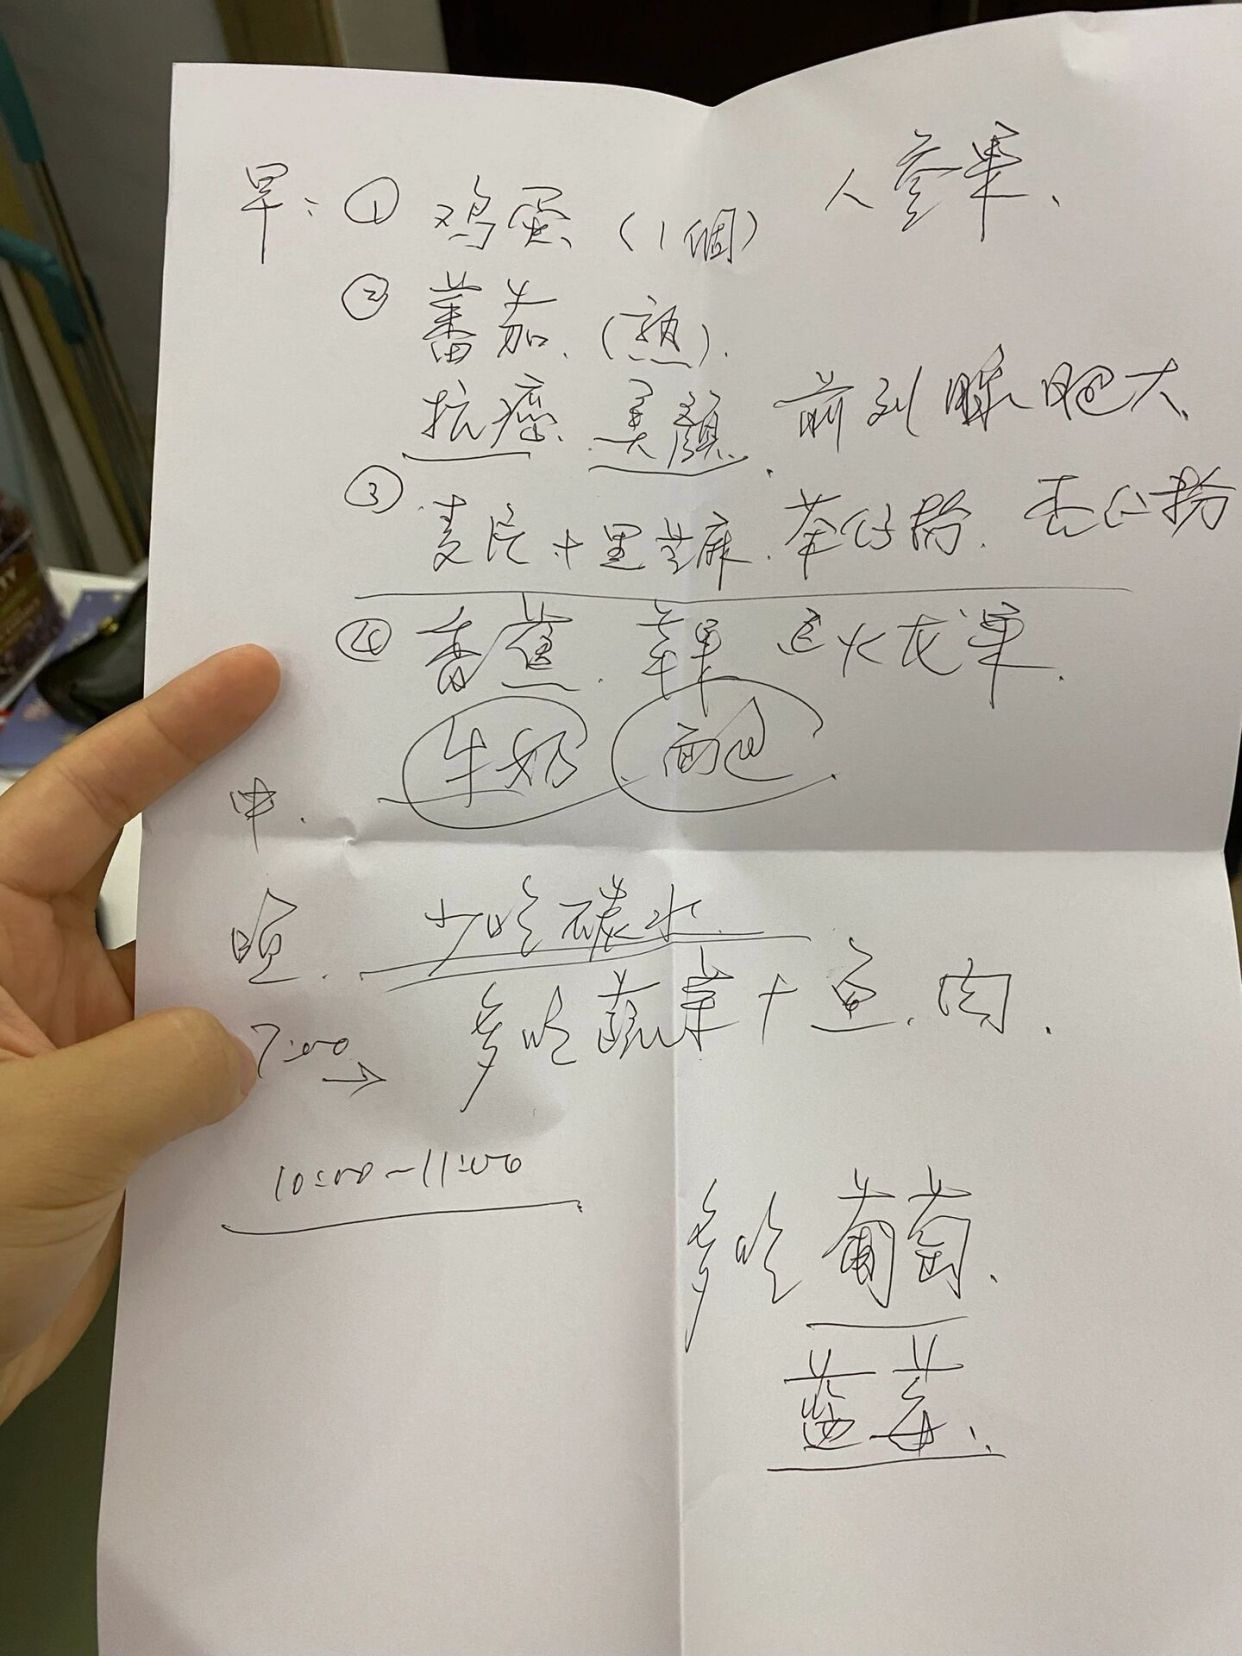 早: ① 鸡蛋 (1個) 人參果、
② 蕃茄. (熟).
抗癌. 美顔. 前列腺肥大、
③ 麦片+黑芝麻. 杏仁粉
④ 香蕉. 苹果 火龙果.
牛奶 面包
中.
晚. 少吃碳水.
7:00→ 多吃蔬菜+鱼. 肉.
10:00-11:00
多吃葡萄.
蓝莓.